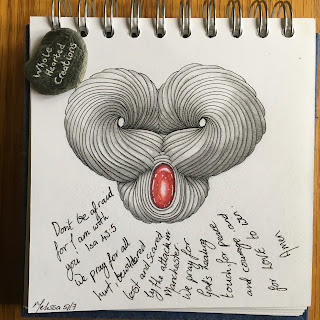 Whole
Hearted
Creations
Don't be afraid
for I am with
you Isa 43.5
We pray for all
hurt, bewildered
lost and scared
by the attack in
Manchester.
We pray for
God's healing
touch for peace and
and courage
for LOVE to
Amen
Melissa